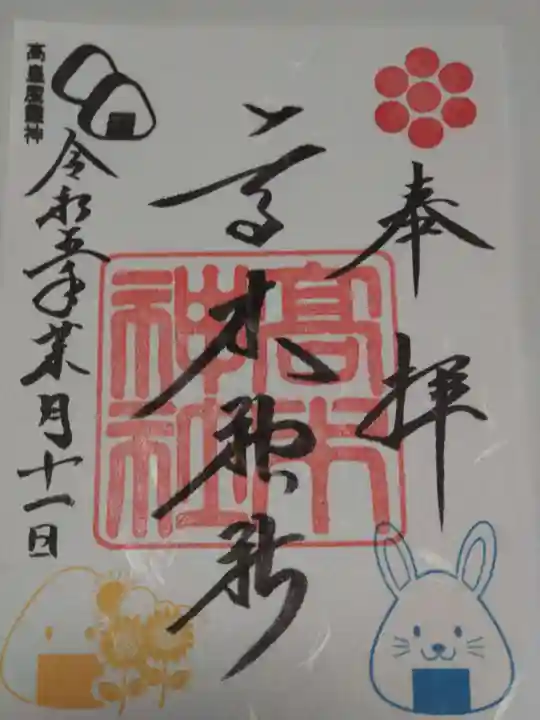 奉拝
高木神社
高木神社
高皇産靈神
令和五年葉月十一日